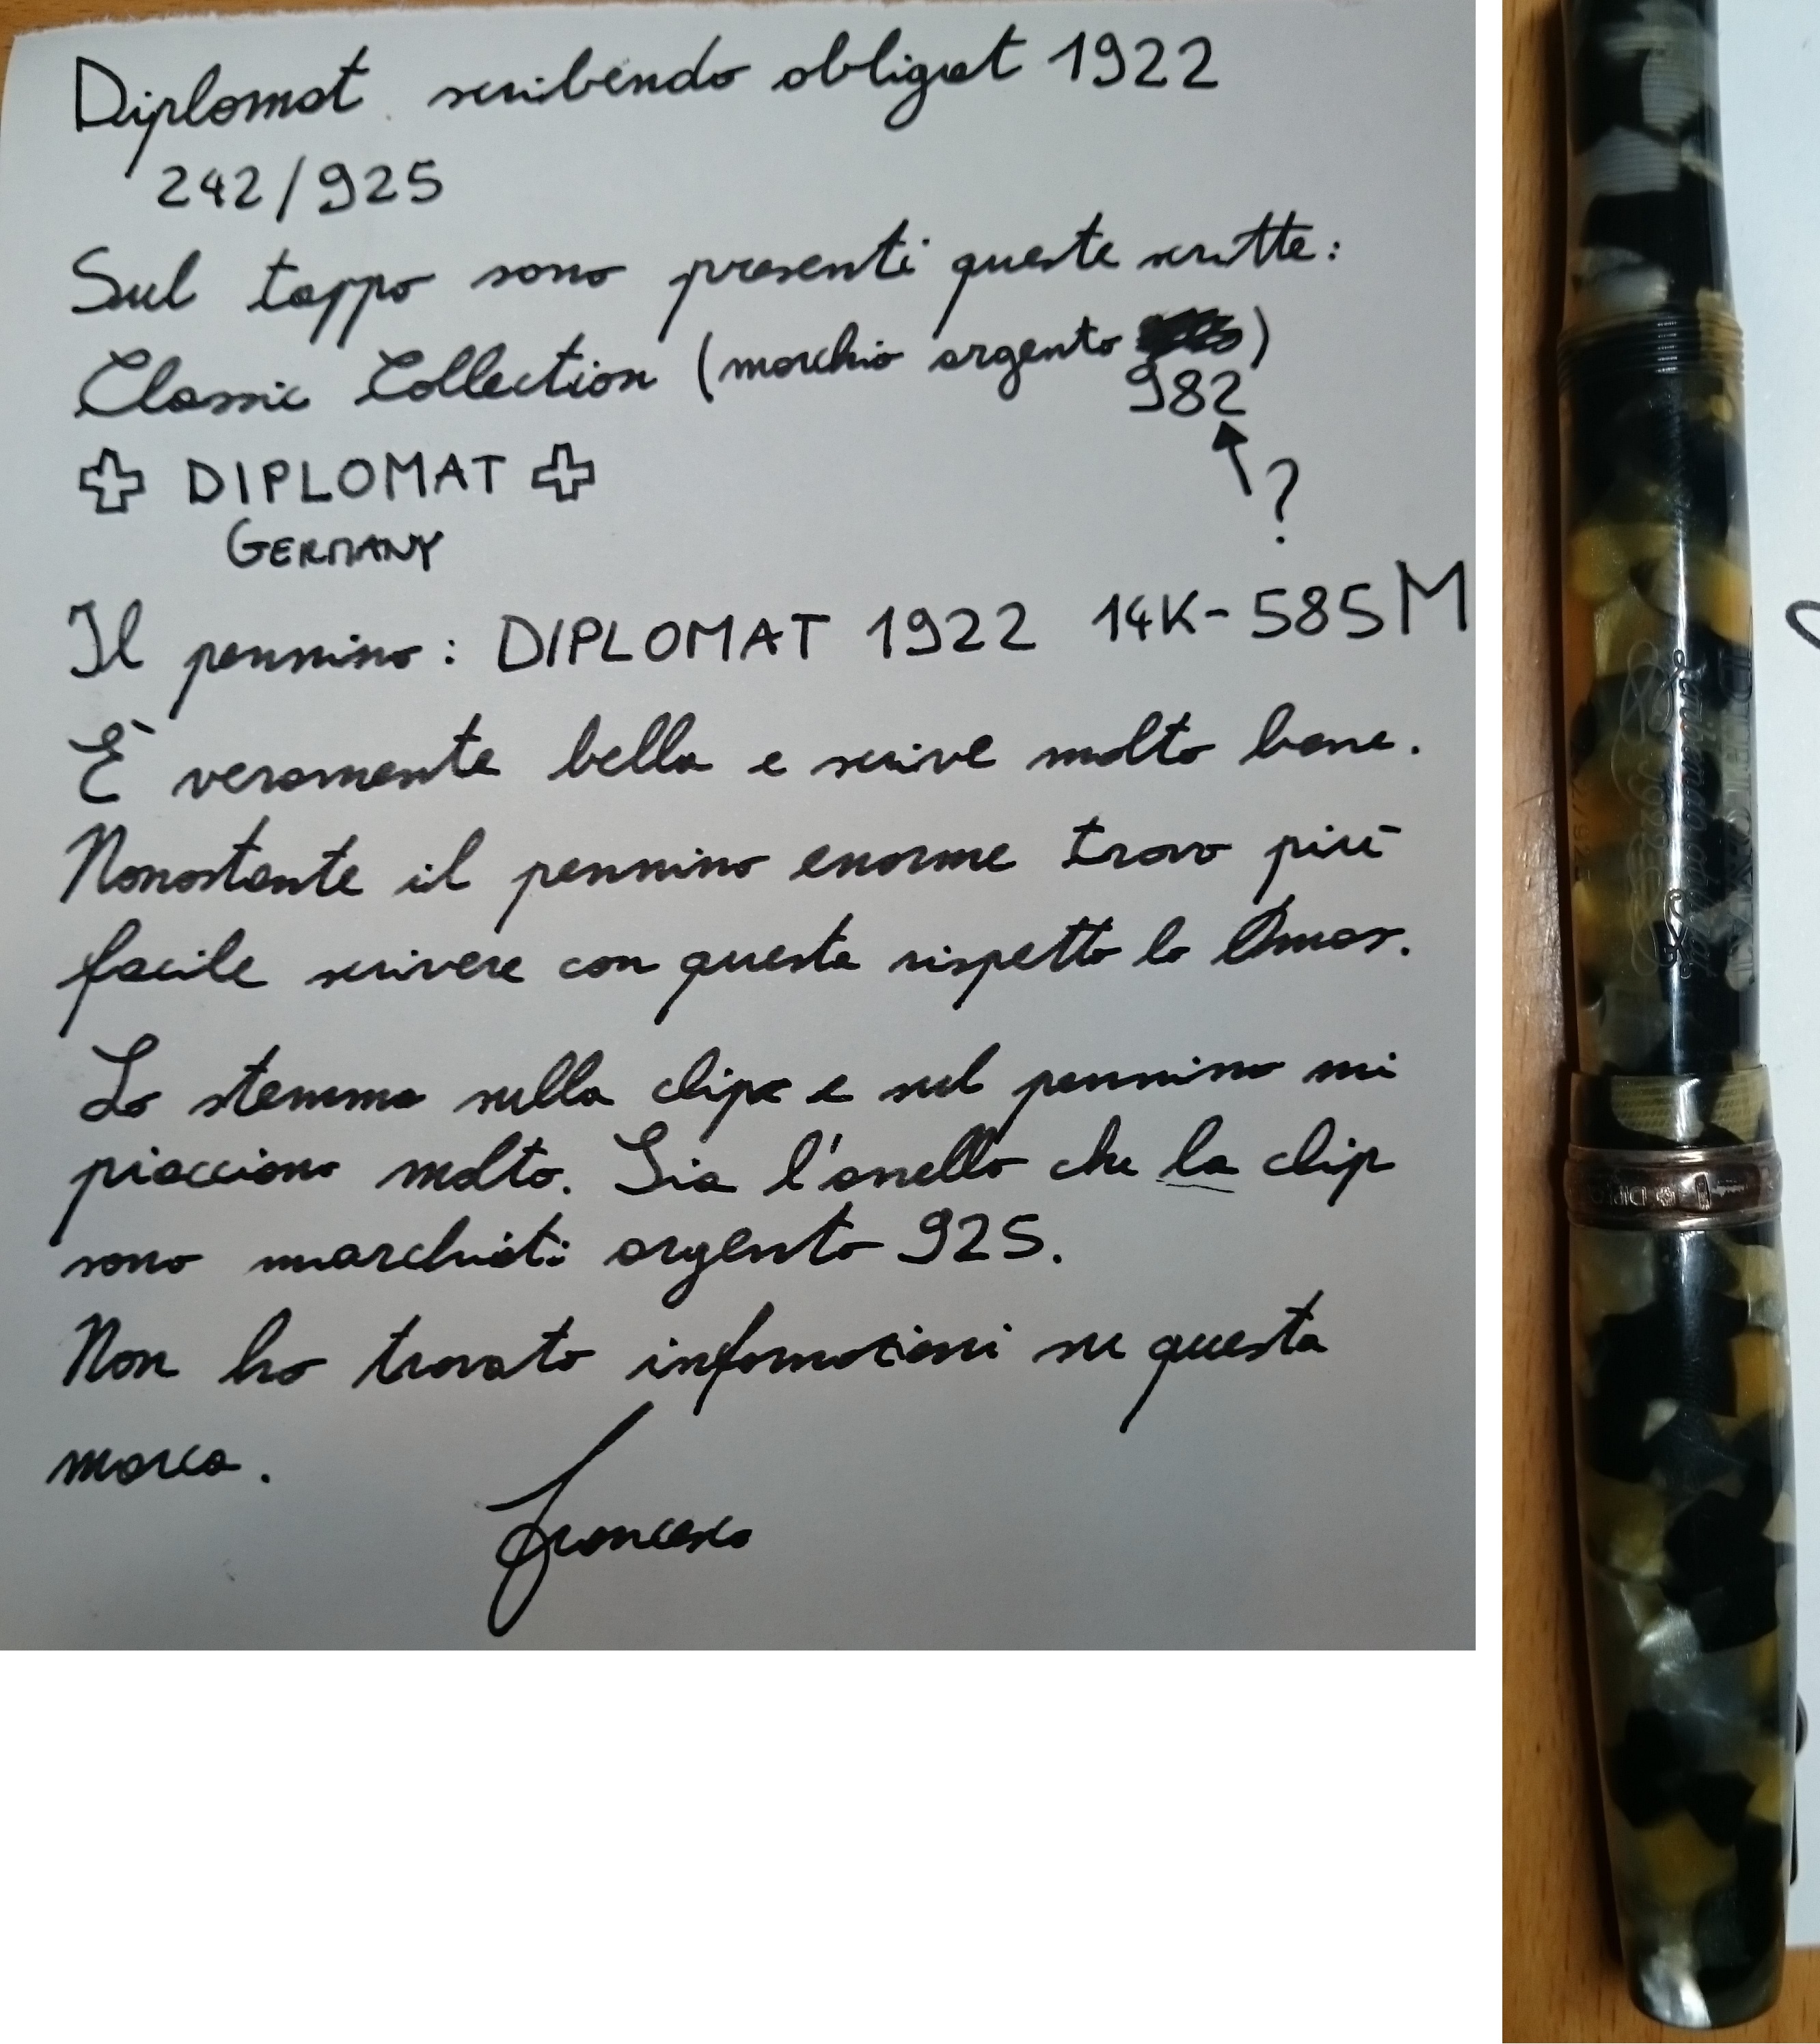 Diplomat scribendo obligat 1922
242/925
Sul tappo sono presenti queste scritte:
Classic Collection (marchio argento )
982
?
DIPLOMAT
GERMANY
Il pennino: DIPLOMAT 1922 14K-585 M
È veramente bella e scrive molto bene.
Nonostante il pennino enorme trovo più
facile scrivere con questa rispetto la Omas.
Lo stemma sulla clip e sul pennino mi
piacciono molto. Sia l'anello che la clip
sono marchiati argento 925.
Non ho trovato informazioni su questa
marca.
Francesco
DIPLOMAT
Scribendo obligat
1922
DIPLO